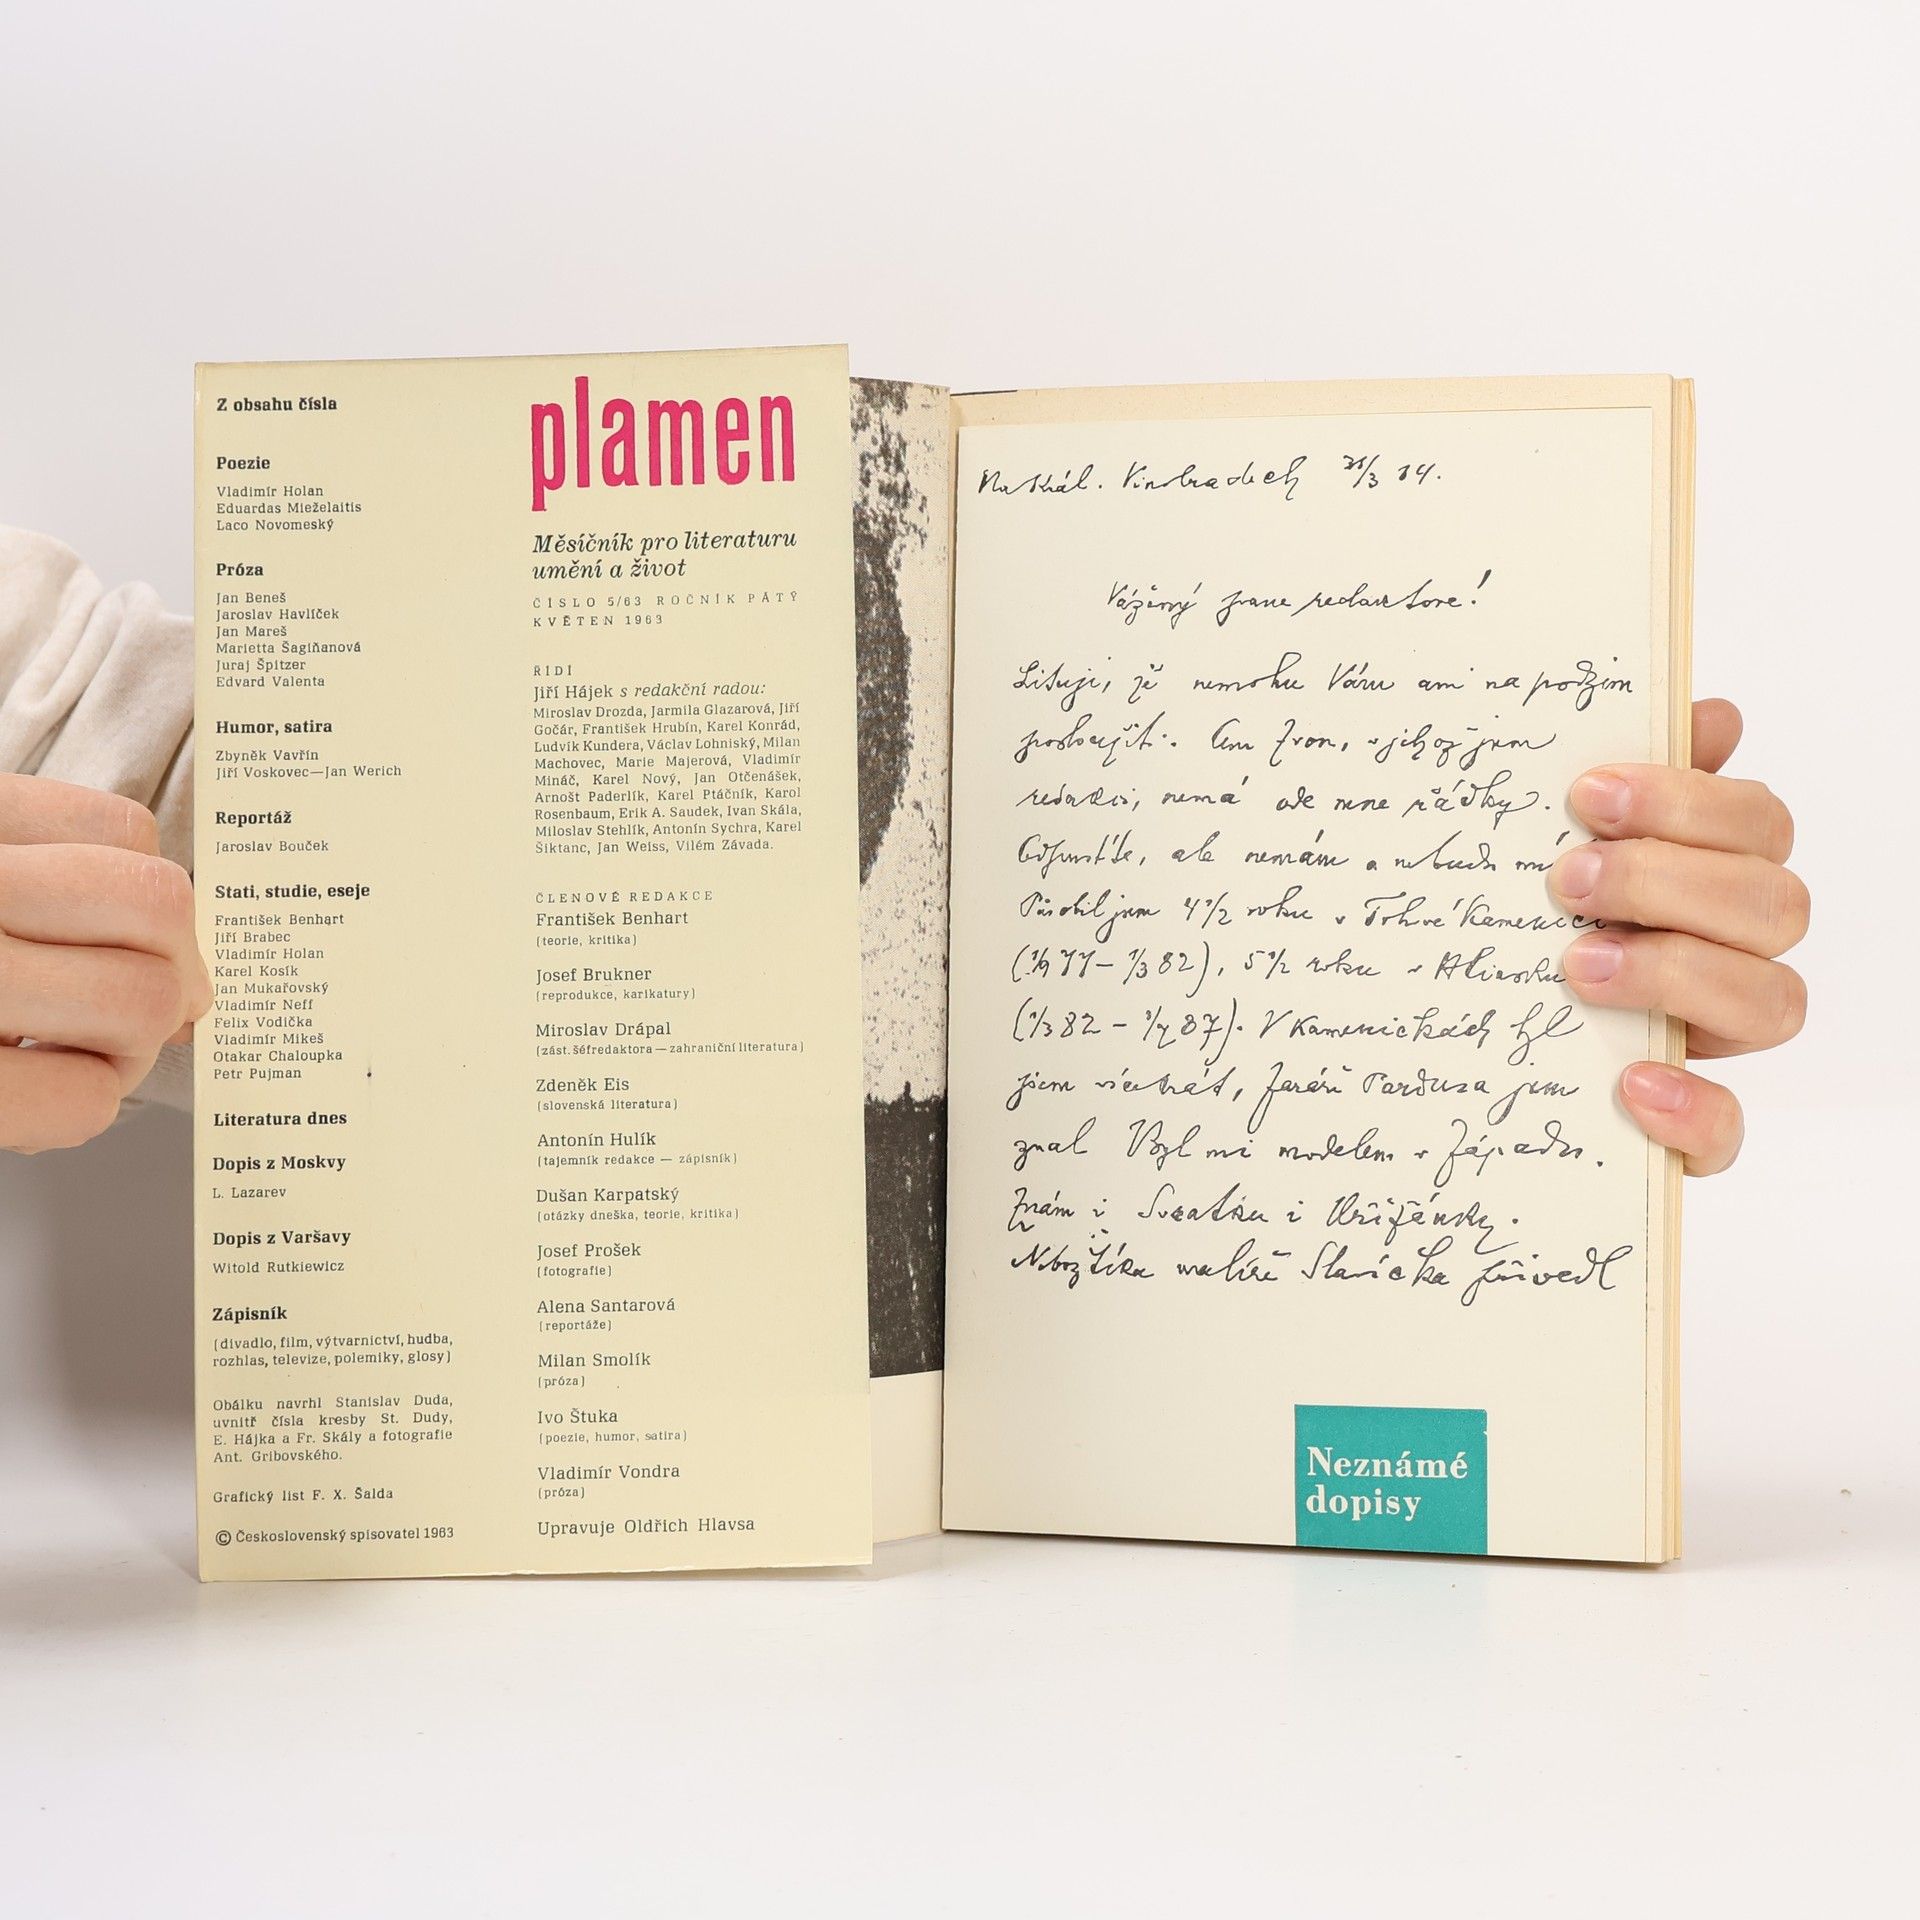 Z obsahu čísla
Poezie
Vladimír Holan
Eduardas Mieželaitis
Laco Novomeský
Próza
Jan Beneš
Jaroslav Havlíček
Jan Mareš
Marietta Šagiňanová
Juraj Špitzer
Edvard Valenta
Humor, satira
Zbyněk Vavřín
Jiří Voskovec—Jan Werich
Reportáž
Jaroslav Bouček
Stati, studie, eseje
František Benhart
Jiří Brabec
Vladimír Holan
Karel Kosík
Jan Mukařovský
Vladimír Neff
Felix Vodička
Vladimír Mikeš
Otakar Chaloupka
Petr Pujman
Literatura dnes
Dopis z Moskvy
L. Lazarev
Dopis z Varšavy
Witold Rutkiewicz
Zápisník
(divadlo, film, výtvarnictví, hudba,
rozhlas, televize, polemiky, glosy)
Obálku navrhl Stanislav Duda,
uvnitř čísla kresby St. Dudy,
E. Hájka a Fr. Skály a fotografie
Ant. Gribovského.
Grafický list F. X. Šalda
© Československý spisovatel 1963
plamen
Měsíčník pro literaturu
umění a život
ČÍSLO 5/63 ROČNÍK PÁTÝ
KVĚTEN 1963
ŘÍDÍ
Jiří Hájek s redakční radou:
Miroslav Drozda, Jarmila Glazarová, Jiří
Gočár, František Hrubín, Karel Konrád,
Ludvík Kundera, Václav Lohniský, Milan
Machovec, Marie Majerová, Vladimír
Mináč, Karel Nový, Jan Otčenášek,
Arnošt Paderlík, Karel Ptáčník, Karol
Rosenbaum, Erik A. Saudek, Ivan Skála,
Miloslav Stehlík, Antonín Sychra, Karel
Šiktanc, Jan Weiss, Vilém Závada.
ČLENOVÉ REDAKCE
František Benhart
(teorie, kritika)
Josef Brukner
(reprodukce, karikatury)
Miroslav Drápal
(zást. šéfredaktora — zahraniční literatura)
Zdeněk Eis
(slovenská literatura)
Antonín Hulík
(tajemník redakce — zápisník)
Dušan Karpatský
(otázky dneška, teorie, kritika)
Josef Prošek
(fotografie)
Alena Santarová
(reportáže)
Milan Smolík
(próza)
Ivo Štuka
(poezie, humor, satira)
Vladimír Vondra
(próza)
Upravuje Oldřich Hlavsa
Na Král. Vinohradech
Vážený pane redaktore!
Lituji, že nemohu Vám ani na podzim
posloužit. Ani Zvon, v jehož jsem
redakci, nemá ode mne řádky.
Odpusťte, ale nemám a nebudu
Působil jsem 4 1/2 roku v Trhové Kamenici
(1/9 77 – 1/3 82), 5 1/2 roku v Hlinsku
(1/3 82 – 87). V Kameničkách byl
jsem vícekrát, faráře Pardusa jsem
znal Byl mi modelem v Západu.
Znám i Svratku i Křižánky.
Nebožtíka malíře Slavíčka přivedl
Neznámé
dopisy